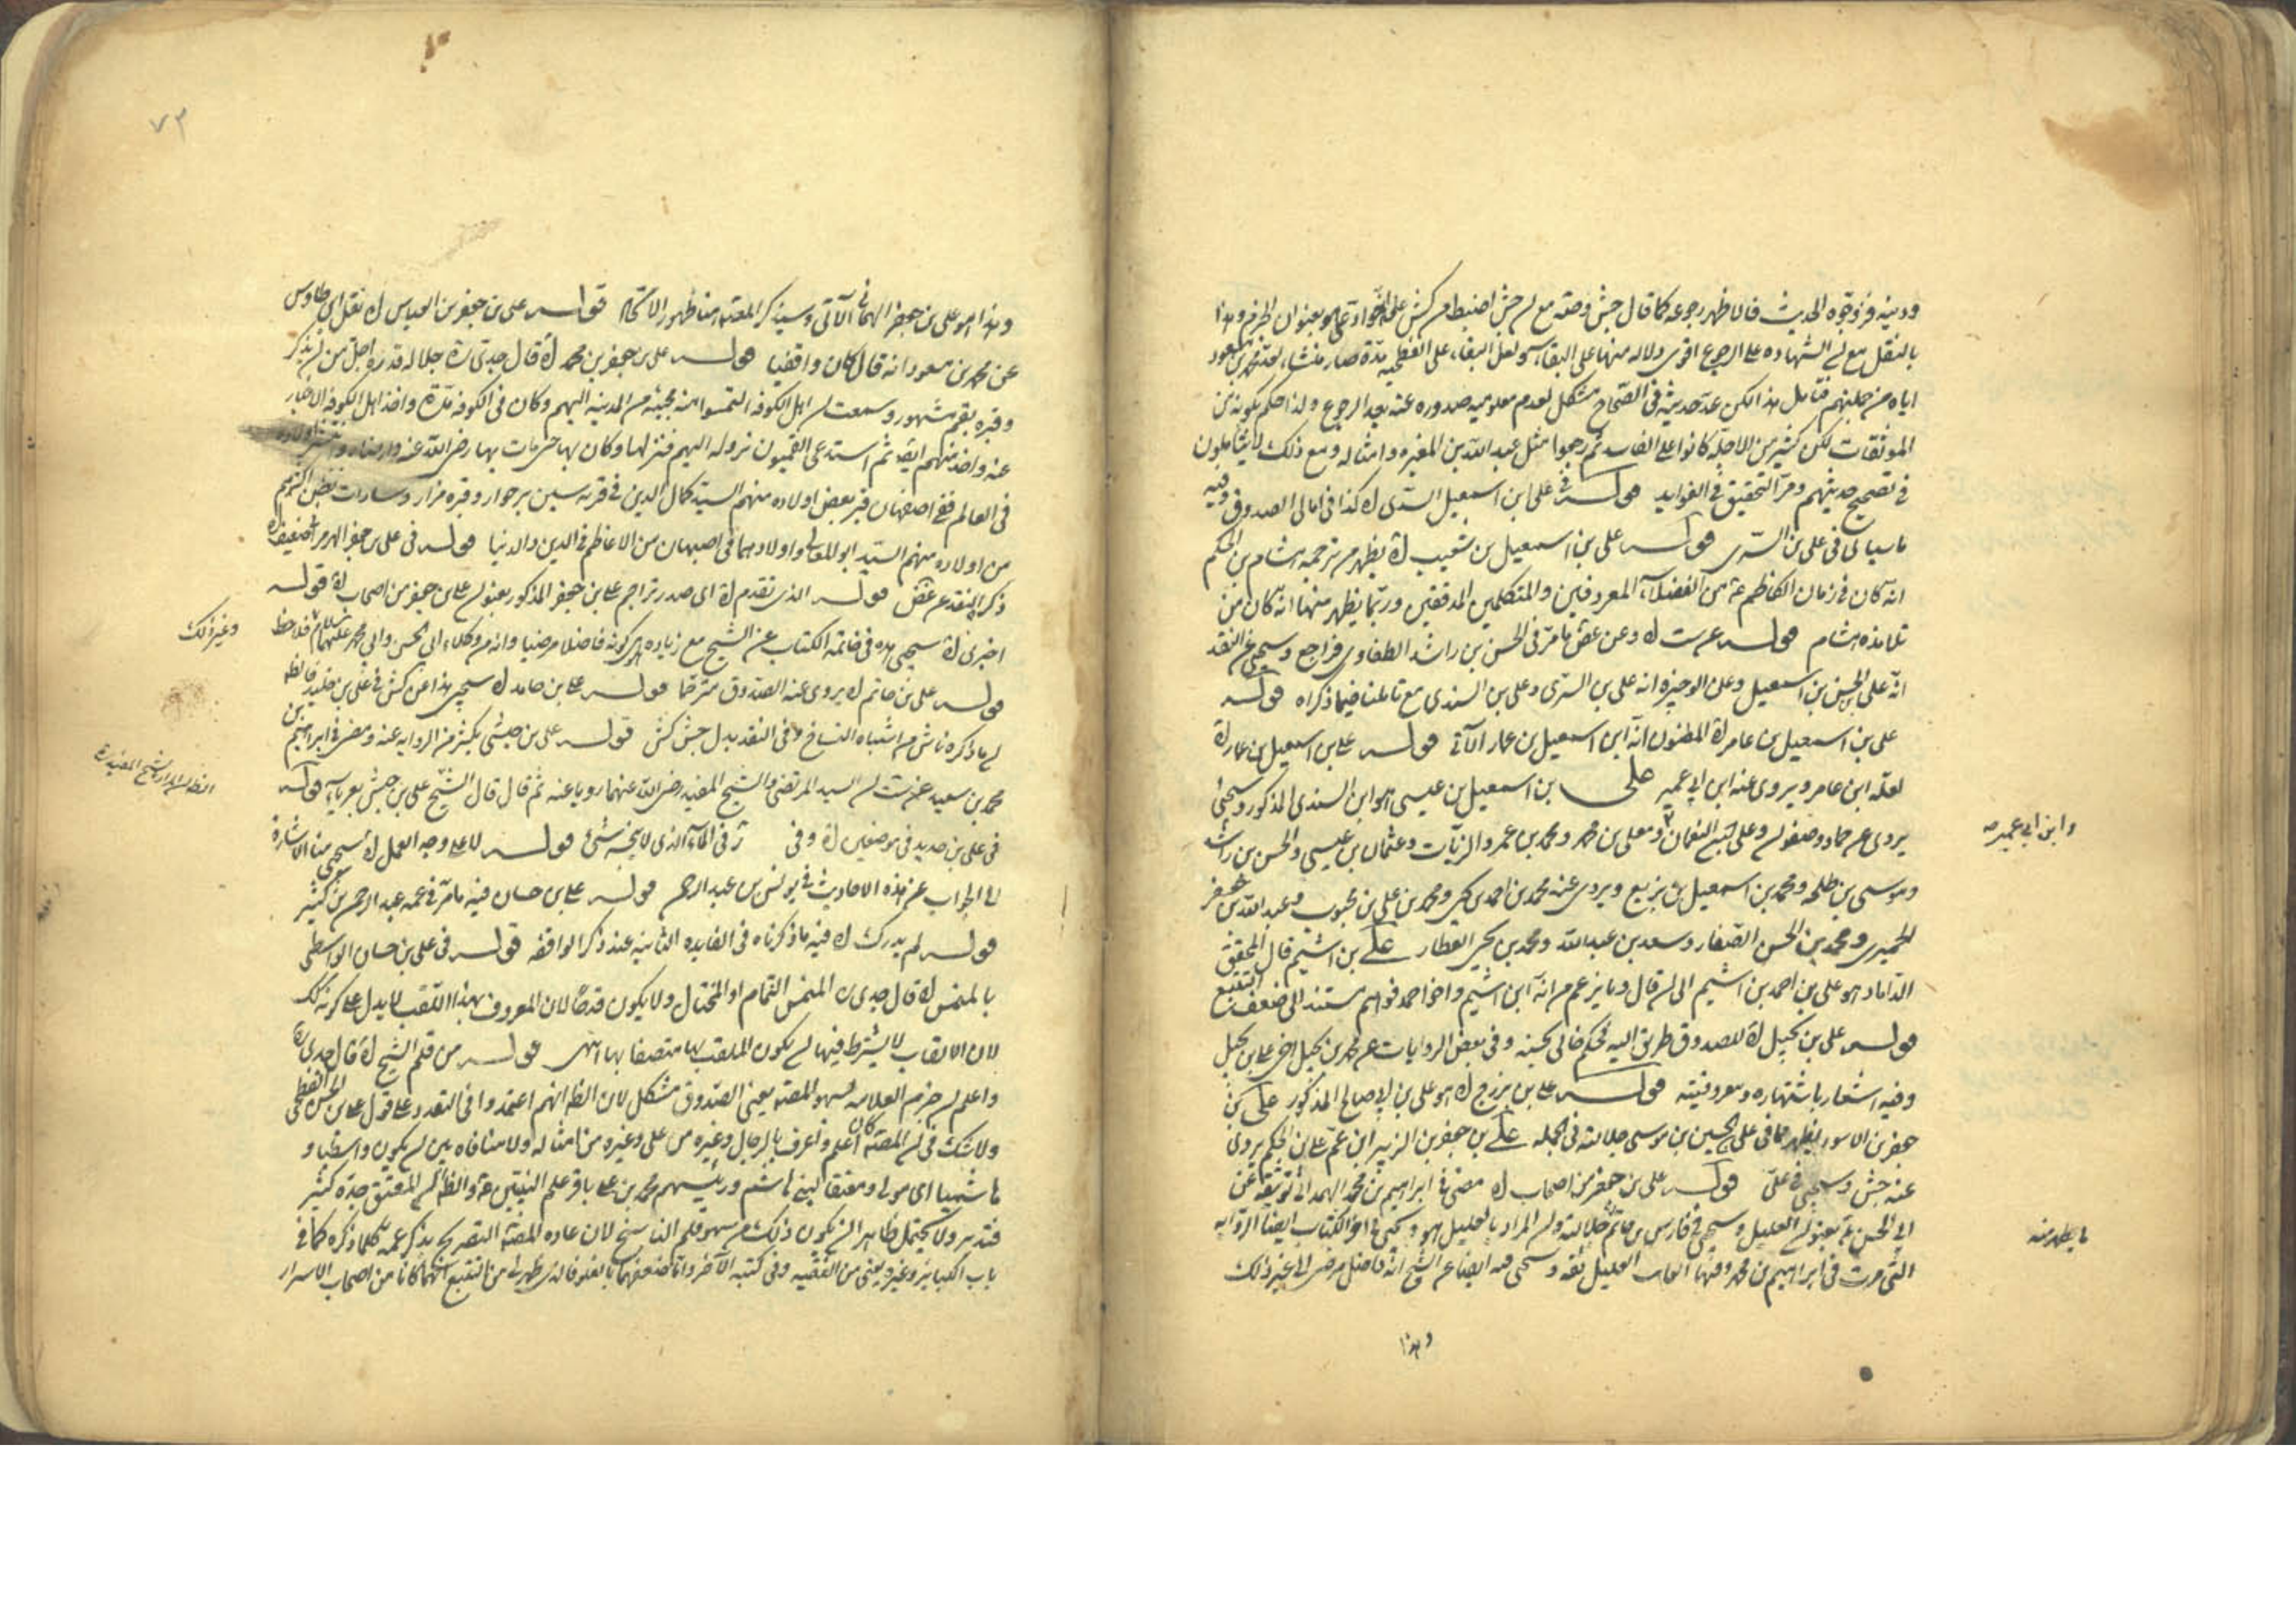 ودينه فزوجوه الحديث فالاظهر رجوعه كما قال جش وصه مع ان جش اضبط من كش
بالنقل مع ان الشهاده على الرجوع اقوى دلاله منها على البقاء ولعل البقاء على الفطحيه مدة صار منشاء لعد محمد بن مسعود
اياه من جملتهم فتامل هذا لكن عد حديثه فى الصحاح مشكل لعدم معلوميه صدوره عنه بعد الرجوع ولذا حكم بكونه من
الموثقات لكن كثير من الاجله كانوا على الفاسد ثم رجعوا مثل عبد الله بن المغيره وامثاله ومع ذلك لا يتأملون
فى تصحيح حديثهم ومر التحقيق فى الفوايد قوله فى على ابن اسمعيل السدى اه كذا فى امالى الصدوق وفيه
ما سيأتى فى على بن السرى قوله على بن اسمعيل بن شعيب اه يظهر من ترجمه هشام بن الحكم
انه كان فى زمان الكاظم ع من الفضلاء المعروفين والمتكلمين المدققين وربما يظهر منها انه كان من
تلامذه هشام قوله عرت اه وعن عض ما مر فى الحسن بن راشد الطفاوى فراجع وسيجئ عن النقد
انه على بن الحسن بن اسمعيل وعن الوجيزه انه على بن السرى وعلى بن السندى مع تاملنا فيما ذكراه قوله
على بن اسمعيل بن عامر اه المظنون انه ابن اسمعيل بن عمار الآتى قوله على بن اسمعيل بن عمار اه
لعله ابن عامر ويروى عنه ابن ابى عمير على بن اسمعيل بن عيسى هو ابن السندى المذكور وسيجئ
يروى عن حماد وصفوان وعلى بن النعمان ومعلى بن محمد ومحمد بن عمرو الزيات وعثمان بن عيسى والحسن بن راشد
وابن ابى عمير صه
وموسى بن طلحه ومحمد بن اسمعيل بن بزيع ويروى عنه محمد بن احمد بن يحيى ومحمد بن على بن محبوب وعبد الله بن جعفر
الحميرى ومحمد بن الحسن الصفار وسعد بن عبد الله ومحمد بن يحيى العطار على بن اشيم قال المحقق
الداماد هو على بن احمد بن اشيم الى ان قال وما يزعم من انه ابن اشيم واخو احمد فوهم مستند الى ضعف التتبع
قوله على بن بجيل اه للصدوق طريق اليه فحكم خالى بحسنه وفى بعض الروايات عن محمد بن بجيل اخى على بن بجيل
وفيه اشعار باشتهاره ومعروفيته قوله على بن بزرج اه هو على بن ابى صالح المذكور على بن
جعفر بن الاسود يظهر مما فى على بن الحسين بن موسى جلالته فى الجمله على بن جعفر بن الزبير ابن عم على بن الحكم يروى
عنه جش وسيجئ فى على قوله على بن جعفر من اصحاب اه مضى فى ابراهيم بن محمد الهمدانى توثيقه عن
ابى الحسن ع بعنوان العليل وسيجئ فى فارس بن حاتم جلالته وان المراد بالعليل هو ويجئ فى اخر الكتاب ايضا الروايه
ما يظهر منه
التى مرت فى ابراهيم بن محمد وفيها الغايب العليل ثقه وسيجئ فيه ايضا عن الشيخ انه فاضل مرضى الى غير ذلك
وهذا
٧٣
وهذا هو على بن جعفر الهمانى الآتى وسيذكر المصنف هنا ظهور الاتحاد قوله على بن جعفر بن العباس اه نقل ابن طاوس
عن محمد بن مسعود انه قال كان واقفيا قوله على بن جعفر بن محمد اه قال جدى ره جلاله قدره اجل من ان يذكر
وقبره بقم مشهور وسمعت ان اهل الكوفه التمسوا منه مجيئه من المدينه اليهم وكان فى الكوفه مدة واخذ اهل الكوفه الاخبار
عنه واخذ منهم ايضا ثم استدعى القميون نزوله اليهم فنزلها وكان بها حتى مات بها رضى الله عنه وارضاه وانتشر اولاده
فى العالم ففى اصفهان قبر بعض اولاده منهم السيد كمال الدين فى قريه سين برخوار وقبره مزار وسادات نطنز اكثرهم
من اولاده منهم السيد ابو المعالى واولادهما فى اصبهان من الاعاظم فى الدين والدنيا قوله فى على بن جعفر الهرمزانى ضعيف اه
ذكرا لينقد عن غض قوله الذى تقدم اه اى صدر تراجم على بن جعفر المذكور بعنوان على بن جعفر من اصحاب اه قوله
اخبرنى اه سيجئ هذه فى خاتمة الكتاب عن الشيخ مع زياده هى كونه فاضلا مرضيا وانه من وكلاء ابى الحسن وابى محمد عليهما السلام فلاحظ
وغير ذلك
قوله على بن حاتم اه يروى عنه الصدوق مترحما قوله على بن حامد اه سيجئ هذا عن كش فى على بن خليد فالظ
ان ما ذكره ناش من اشتباه النساخ وفى النقد بدل جش كش قوله على بن حبشى يكثر من الروايه عنه ومضى فى ابراهيم بن
محمد بن سعيد عن ست ان السيد المرتضى والشيخ المفيد رضى الله عنهما رويا عنه ثم قال قال الشيخ على بن حبش بغير ياء قوله
الظ ان المراد الشيخ المفيد ره
فى على بن حديد فى موضعين اه وفى ر فى الماء الذى لا ينجسه شئ قوله لا على وجه العمل اه سيجئ منا الاشارة
الى الجواب عن هذه الاحاديث فى يونس بن عبد الرحمن قوله على بن حسان فيه ما مر فى عمه عبد الرحمن بن كثير
قوله لم يدرك اه فيه ما ذكرناه فى الفايده الثانيه عند ذكر الواقفه قوله فى على بن حسان الواسطى
بالمنمس اه قال جدى ره المنمس النمام او المختال ولا يكون قدحا لان المعروف بهذا اللقب لا يدل على كونه كك
لان الالقاب لا يشترط فيها ان يكون الملقب بها متصفا بها انتهى قوله من قلم الشيخ اه قال جدى ره
واعلم ان جزم العلامه بسهو المصنف يعنى الصدوق مشكل لان الظ انهم اعتمدوا فى التعدد على قول على بن الحسن الفطحى
ولا شك فى ان المصنف كان اعلم واعرف بالرجال وغيره من على وغيره من امثاله ولا منافاه بين ان يكون واسطيا و
هاشميا اى مولى ومعتقا لبنى هاشم ورئيسهم محمد بن على باقر علم النبيين ع والظ ان المعتق جده كثير
فتدبر ولا يحتمل ظاهرا ان يكون ذلك من سهو قلم الناسخ لان عادة المصنف التصريح بذكر عمه كلما ذكره كما فى
باب الكبائر وغيره يعنى من الفقيه وفى كتبه الآخر واما ضعفهما بالغلو فالذى ظهر لى من التتبع انهما كانا من اصحاب الاسرار